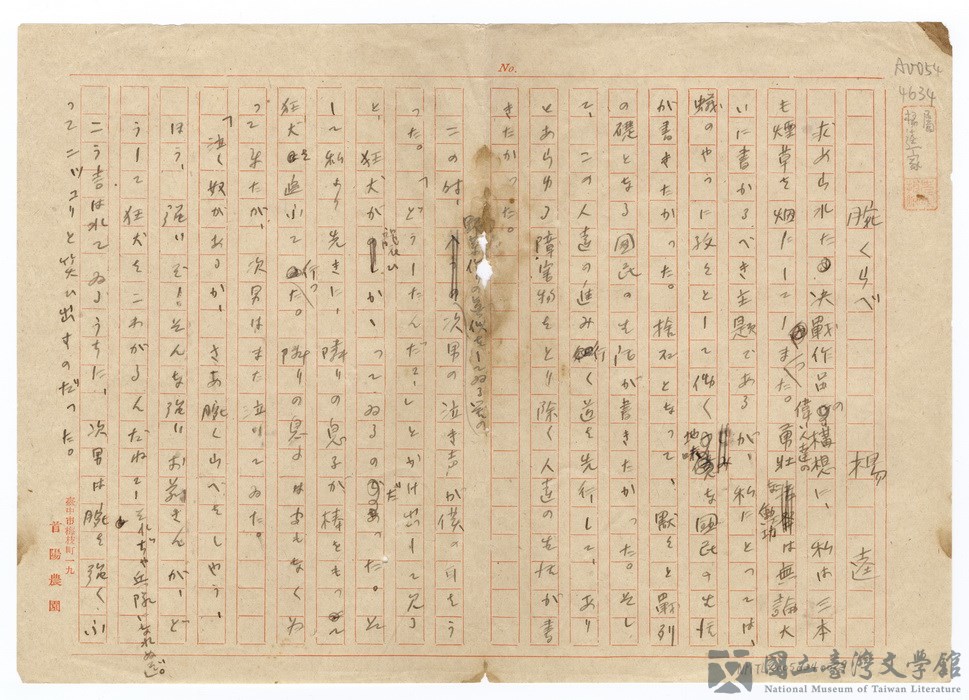 No.
AV054
4634
腕くらべ
楊 逵
求められた決戰作品の構想に、私は三本
も煙草を烟にしてしまった。偉い人達の勇壯な勳功は無論大
いに書かるべき主題であるが、私にとっては、
蟻のやうに孜々として働く地味な國民の生活
が書きたかった。捨石となって、默々と戰列
の礎となる國民の生活が書きたかった。そし
て、この人達の進み行く道を先行して、あり
とあらゆる障害物をとり除く人達の生活が書
きたかった。
この時、次男の泣き声が僕の耳をう
った。「どうしたんだ?」とかけ出して見る
と、狂犬が説いかゝってゐるのだった。
して私より先きに、隣りの息子が棒をもって
狂犬を追ふて行った。隣りの息子はまもなく
って来たが、次男はまた泣いてゐた。
「泣く奴があるか、さあ腕くらべをしやう、
ほう、強いぞ!そんな強いお前さんが、ど
うして狂犬をこわがるんだね?それぢゃ兵隊になれぬぞ。
こう言はれてゐるうちに、次男は腕を強くふ
ってニッコリと笑ひ出すのだった。
臺中市梅枝町一九
首陽農園
國立臺灣文學館
National Museum of Taiwan Literature